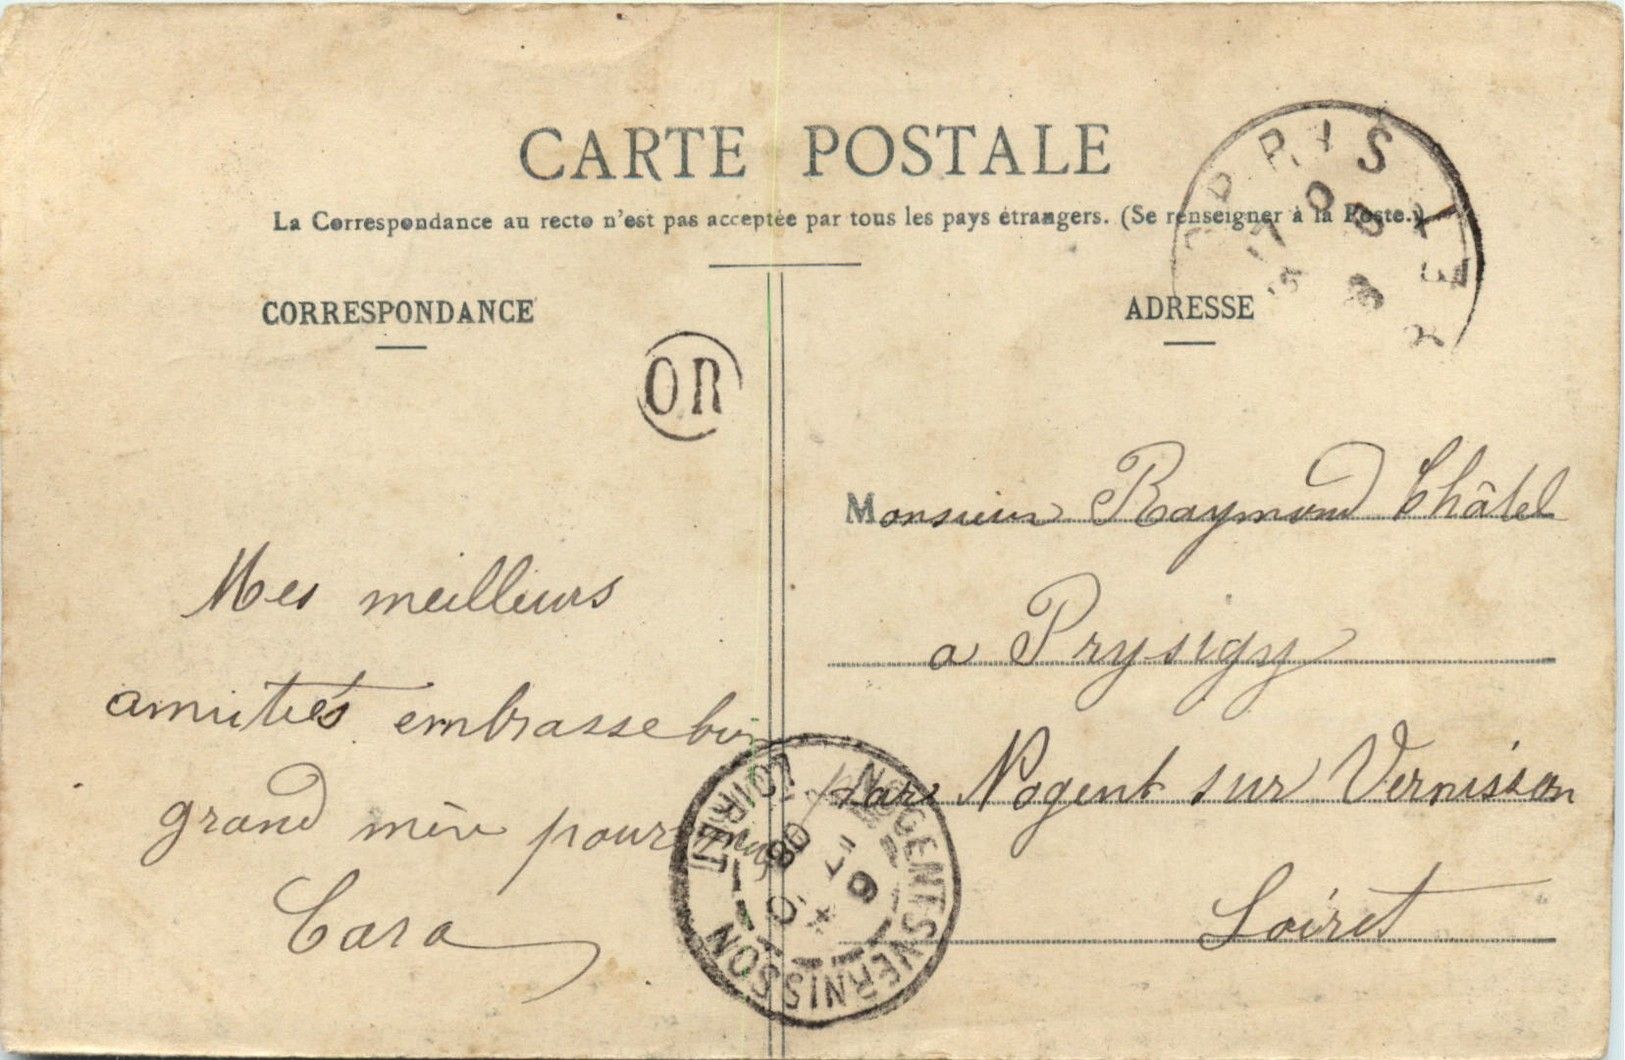 CARTE POSTALE
La Correspondance au recto n'est pas acceptée par tous les pays étrangers. (Se renseigner à la Poste.)
CORRESPONDANCE
OR
Mes meilleurs
amitiés embrasse bien
grand mère pour
Cara
ADRESSE
Monsieur Raymond Châtel
a Prysigy
par Nogent sur Vernisson
Loiret
PARIS
NOGENT S VERNISSON
LOIRET